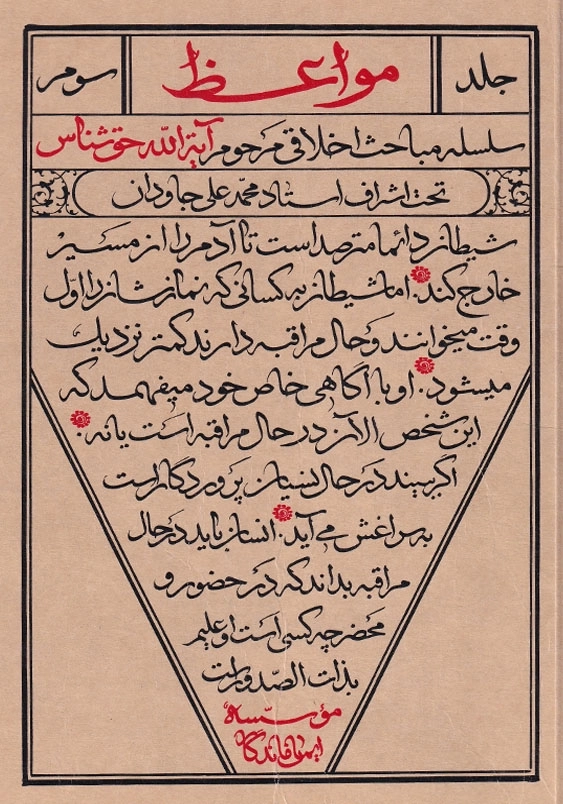 جلد
مواعظ
سوم
سلسله مباحث اخلاقی مرحوم آیةالله حق‌شناس
تحت اشراف استاد محمدعلی جاودان
شیطان دائما مترصد است تا آدم را از مسیر
خارج کند. اما شیطان به کسانی که نمازشان را اول
وقت میخوانند و حال مراقبه دارند کمتر نزدیک
میشود. او با آگاهی خاص خود میفهمد که
این شخص الآن در حال مراقبه است یا نه.
اگر ببیند در حال نسیان پروردگار است
به سراغش می‌آید. انسان باید در حال
مراقبه بداند که در حضور و
محضر چه کسی است او علیم
بذات الصدور است
مؤسسه
ایمان ماندگار